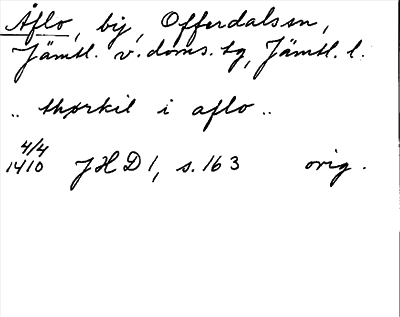 Åflo, by, Offerdals sn,
Jämtl. v. doms. tg, Jämtl. l.
„ thorkil i aflo „
4/4
1410 JHD 1, s. 163 orig.